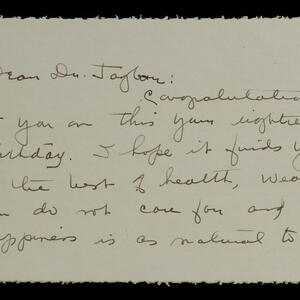 Dear Dr. Taylor:
Congratulatio
t you on this your eightie
rthday. I hope it finds y
the best of health, Wea
u do not care for and
appiness is as natural to